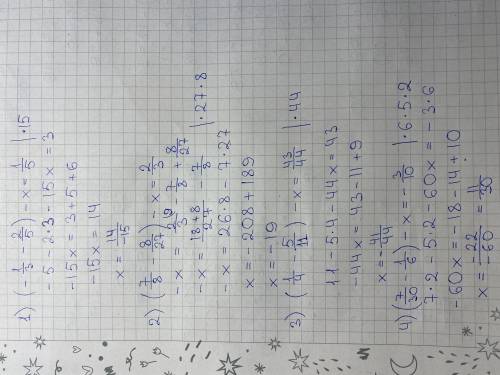 1) (-1/3 - 2/5) - x = 1/5 |·15
-5 - 2·3 - 15x = 3
-15x = 3+5+6
-15x = 14
x = 14/-15
2) (7/8 - 8/27) - x = 2/3
-x = 2/3 - 7/8 + 8/27
-x = 18+8/27 - 7/8 |·27·8
-x = 26·8 - 7·27
x = -208 + 189
x = -19
3) (1/4 - 5/11) - x = 43/44 |·44
11 - 5·4 - 44x = 43
-44x = 43 - 11 + 9
x = - 41/44
4) (7/30 - 1/6) - x = - 3/10 |·6·5·2
7·2 - 5·2 - 60x = -3·6
-60x = -18 - 14 + 10
x = -22/-60 = 11/30